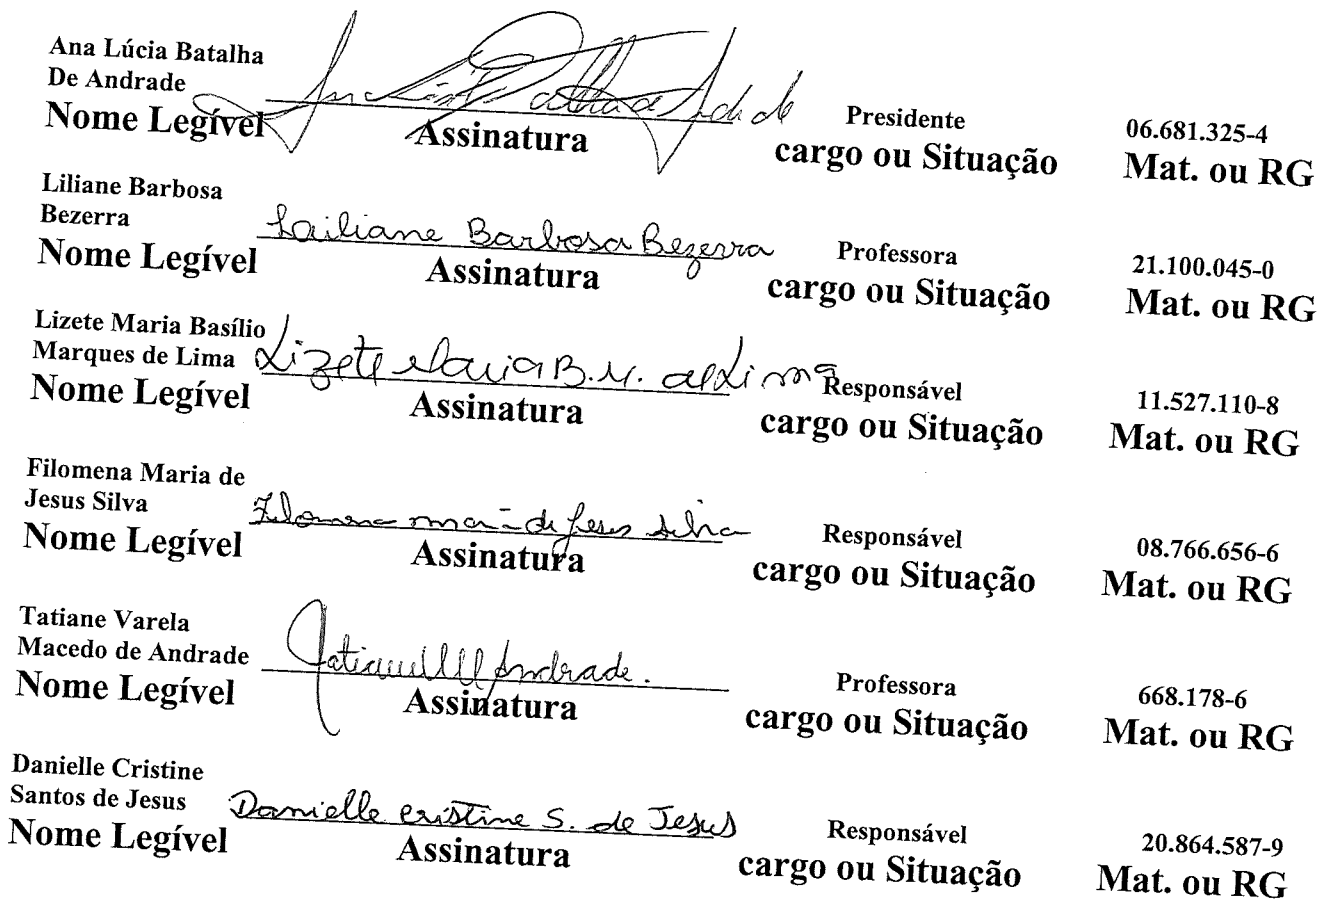 Ana Lúcia Batalha
De Andrade
Nome Legível
Ana Lúcia Batalha de Andrade
Assinatura
Presidente
cargo ou Situação
06.681.325-4
Mat. ou RG
Liliane Barbosa
Bezerra
Nome Legível
Liliane Barbosa Bezerra
Assinatura
Professora
cargo ou Situação
21.100.045-0
Mat. ou RG
Lizete Maria Basílio
Marques de Lima
Nome Legível
Lizete Maria B. M. de Lima
Assinatura
Responsável
cargo ou Situação
11.527.110-8
Mat. ou RG
Filomena Maria de
Jesus Silva
Nome Legível
Filomena maria de Jesus silva
Assinatura
Responsável
cargo ou Situação
08.766.656-6
Mat. ou RG
Tatiane Varela
Macedo de Andrade
Nome Legível
Tatiane Andrade.
Assinatura
Professora
cargo ou Situação
668.178-6
Mat. ou RG
Danielle Cristine
Santos de Jesus
Nome Legível
Danielle cristine S. de Jesus
Assinatura
Responsável
cargo ou Situação
20.864.587-9
Mat. ou RG